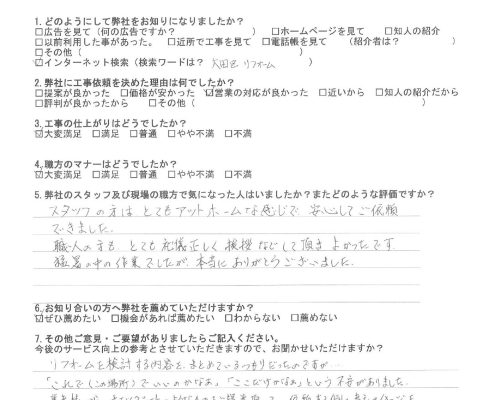 1. どのようにして弊社をお知りになりましたか？
□広告を見て（何の広告ですか？ ） □ホームページを見て □知人の紹介
□以前利用した事があった。 □近所で工事を見て □電話帳を見て （紹介者は？ ）
□その他（ ）
☑インターネット検索（検索ワードは？ 大田区 リフォーム ）
2. 弊社に工事依頼を決めた理由は何でしたか？
□提案が良かった □価格が安かった ☑営業の対応が良かった □近いから □知人の紹介だから
□評判が良かったから □その他（ ）
3. 工事の仕上がりはどうでしたか？
☑大変満足 □満足 □普通 □やや不満 □不満
4. 職方のマナーはどうでしたか？
☑大変満足 □満足 □普通 □やや不満 □不満
5. 弊社のスタッフ及び現場の職方で気になった人はいましたか？またどのような評価ですか？
スタッフの方は とてもアットホームな感じで 安心してご依頼
できました。
職人の方も とても 礼儀正しく 挨拶などして頂き よかったです。
猛暑の中の作業でしたが、本当に ありがとうございました。
6. お知り合いの方へ弊社を薦めていただけますか？
☑ぜひ薦めたい □機会があれば薦めたい □わからない □薦めない
7. その他ご意見・ご要望がありましたらご記入ください。
今後のサービス向上の参考とさせていただきますので、お聞かせいただけますか？
リフォームを検討する内容を まとめているつもりだったのですが…
「これで（この場所）でいいのかなぁ」「ここだけかなぁ」という 不安がありました。